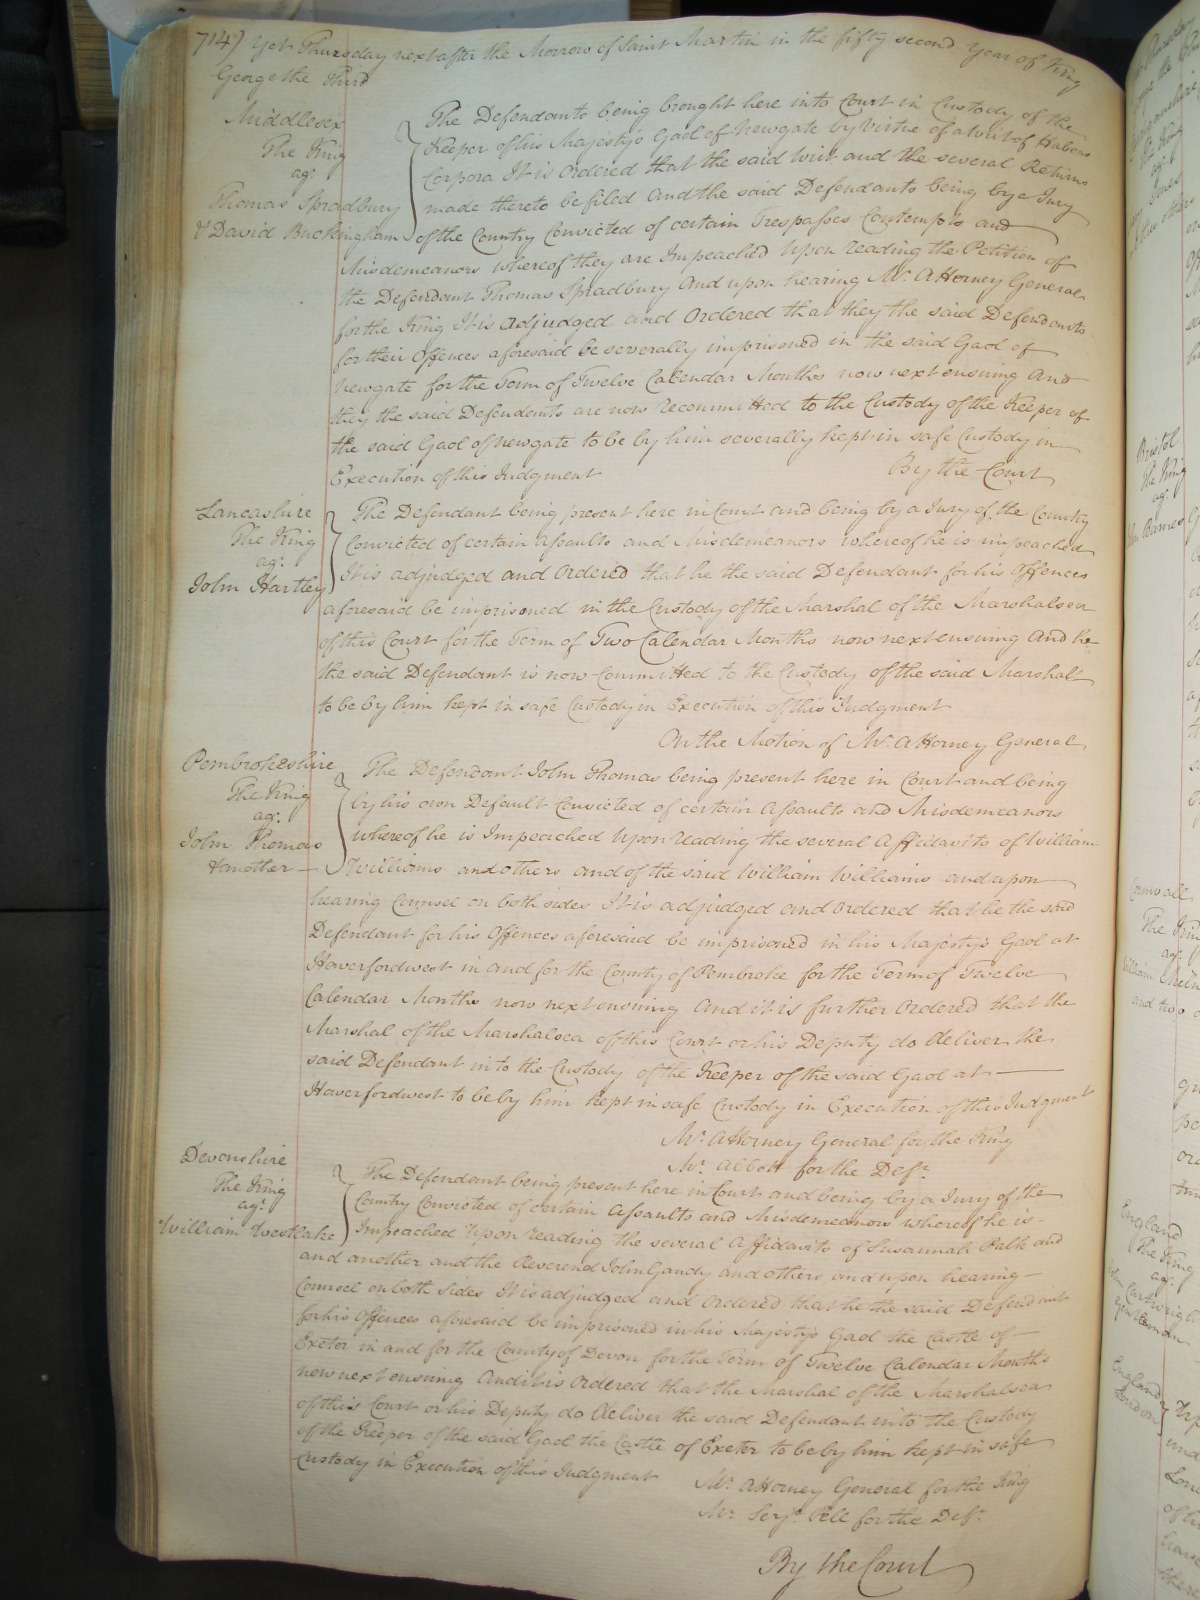 714) Yet Thursday next after the Morrow of Saint Martin in the fifty second Year of King
George the Third
Middlesex
The King
agt.
Thomas Spradbury
& David Buckingham
The Defendants being brought here into Court in Custody of the
Keeper of his Majesty's Gaol of Newgate by Virtue of a Writ of Habeas
Corpora It is Ordered that the said Writ and the several Returns
made thereto be filed And the said Defendants being by a Jury
of the Country Convicted of certain Trespasses Contempts and
Misdemeanors whereof they are Impeached Upon reading the Petition of
the Defendant Thomas Spradbury And upon hearing Mr. Attorney General
for the King It is adjudged and Ordered that they the said Defendants
for their Offences aforesaid be severally imprisoned in the said Gaol of
Newgate for the Term of Twelve Calendar Months now next ensuing And
they the said Defendants are now recommitted to the Custody of the Keeper of
the said Gaol of Newgate to be by him severally kept in safe Custody in
Execution of this Judgment
By the Court
Lancashire
The King
agt.
John Hartley
The Defendant being present here in Court and being by a Jury of the Country
Convicted of certain Assaults and Misdemeanors whereof he is impeached
It is adjudged and Ordered that he the said Defendant for his Offences
aforesaid be imprisoned in the Custody of the Marshal of the Marshalsea
of this Court for the Term of Two Calendar Months now next ensuing And he
the said Defendant is now Committed to the Custody of the said Marshal
to be by him kept in safe Custody in Execution of this Judgment
On the Motion of Mr. Attorney General
Pembrokeshire
The King
agt.
John Thomas
& another
The Defendant John Thomas being present here in Court and being
by his own Default Convicted of certain Assaults and Misdemeanors
whereof he is Impeached Upon reading the several Affidavits of William
Williams and others and of the said William Williams and upon
hearing Counsel on both sides It is adjudged and Ordered that he the said
Defendant for his Offences aforesaid be imprisoned in his Majesty's Gaol at
Haverfordwest in and for the County of Pembroke for the Term of Twelve
Calendar Months now next ensuing And it is further Ordered that the
Marshal of the Marshalsea of this Court or his Deputy do deliver the
said Defendant into the Custody of the Keeper of the said Gaol at
Haverfordwest to be by him kept in safe Custody in Execution of this Judgment
Mr. Attorney General for the King
Mr. Abbott for the Deft.
Devonshire
The King
agt.
William Westlake
The Defendant being present here in Court and being by a Jury of the
Country Convicted of certain Assaults and Misdemeanors whereof he is
Impeached Upon reading the several Affidavits of Susannah Palk and
and another and the Reverend John Gandy and others and upon hearing
Counsel on both Sides It is adjudged and Ordered that he the said Defendant
for his Offences aforesaid be imprisoned in his Majesty's Gaol the Castle of
Exeter in and for the County of Devon for the Term of Twelve Calendar Months
now next ensuing And it is Ordered that the Marshal of the Marshalsea
of this Court or his Deputy do deliver the said Defendant into the Custody
of the Keeper of the said Gaol the Castle of Exeter to be by him kept in safe
Custody in Execution of this Judgment
Mr. Attorney General for the King
Mr. Serjt. Pell for the Deft.
By the Court
Bristol
The King
agt.
Cornwall
The King
agt.
and two
England
The King
agt.
Cartwright
Gentleman
England
London